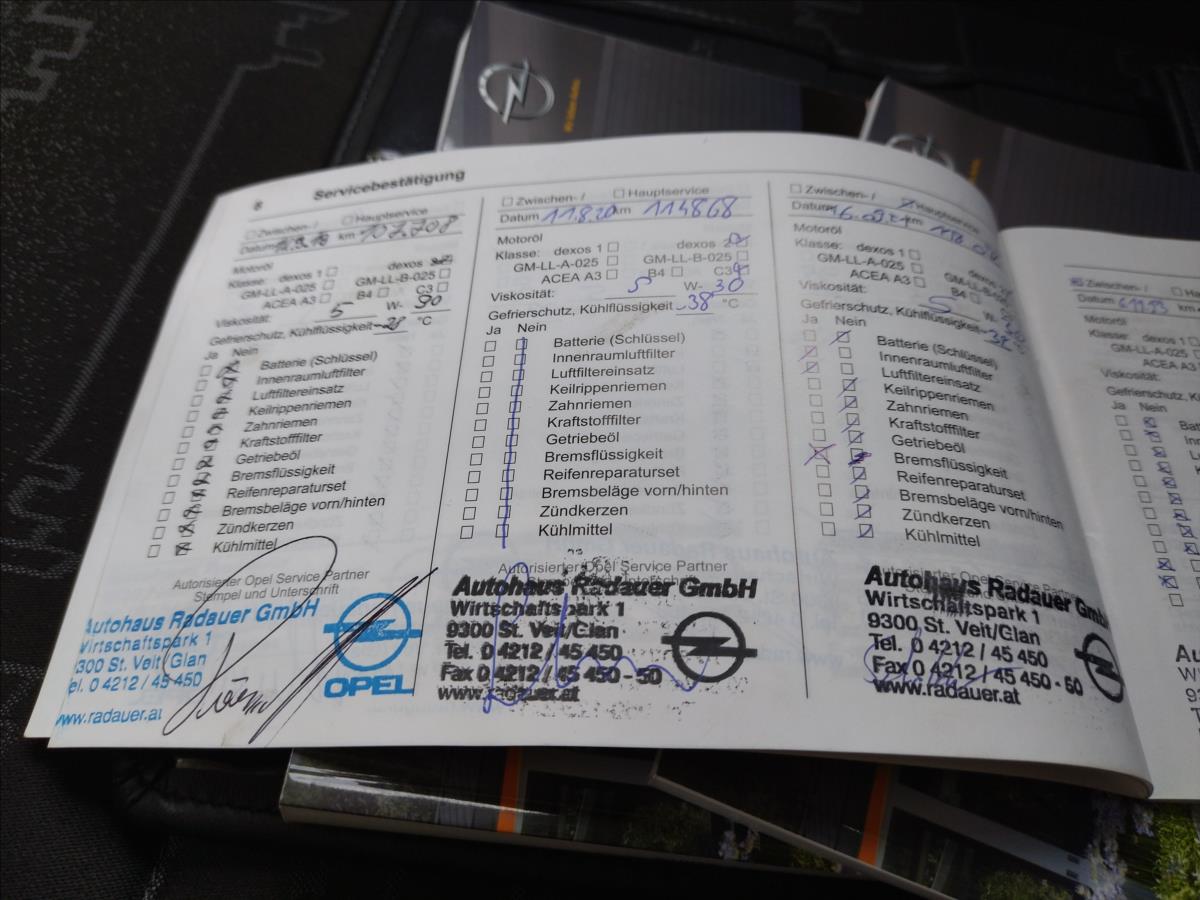 8 Servicebestätigung
Zwischen- / Hauptservice
Datum km 107.208
Motoröl
Klasse: dexos 1 dexos
GM-LL-A-025 GM-LL-B-025
ACEA A3 B4 C3
Viskosität: 5 W-
Gefrierschutz, Kühlflüssigkeit -28 °C
Ja Nein
Batterie (Schlüssel)
Innenraumluftfilter
Luftfiltereinsatz
Keilrippenriemen
Zahnriemen
Kraftstofffilter
Getriebeöl
Bremsflüssigkeit
Reifenreparaturset
Bremsbeläge vorn/hinten
Zündkerzen
Kühlmittel
Autorisierter Opel Service Partner
Stempel und Unterschrift
Autohaus Radauer GmbH
Wirtschaftspark 1
9300 St. Veit/Glan
Tel. 0 4212 / 45 450
www.radauer.at
OPEL
Zwischen- / Hauptservice
Datum 11.8.20 km 114868
Motoröl
Klasse: dexos 1 dexos 2
GM-LL-A-025 GM-LL-B-025
ACEA A3 B4 C3
Viskosität: 5 W- 30
Gefrierschutz, Kühlflüssigkeit -38 °C
Ja Nein
Batterie (Schlüssel)
Innenraumluftfilter
Luftfiltereinsatz
Keilrippenriemen
Zahnriemen
Kraftstofffilter
Getriebeöl
Bremsflüssigkeit
Reifenreparaturset
Bremsbeläge vorn/hinten
Zündkerzen
Kühlmittel
Autorisierter Opel Service Partner
Autohaus Radauer GmbH
Wirtschaftspark 1
9300 St. Veit/Glan
Tel. 0 4212 / 45 450
Fax 0 4212 / 45 450 - 50
www.radauer.at
Zwischen- / Hauptservice
Datum km
Motoröl
Klasse: dexos 1
GM-LL-A-025
ACEA A3 B4
Viskosität: 5 W-
Gefrierschutz, Kühlflüssigkeit
Ja Nein
Batterie (Schlüssel)
Innenraumluftfilter
Luftfiltereinsatz
Keilrippenriemen
Zahnriemen
Kraftstofffilter
Getriebeöl
Bremsflüssigkeit
Reifenreparaturset
Bremsbeläge vorn/hinten
Zündkerzen
Kühlmittel
Autorisierter Opel Service Partner
Autohaus Radauer GmbH
Wirtschaftspark 1
9300 St. Veit/Glan
Tel. 0 4212 / 45 450
Fax 0 4212 / 45 450 - 50
www.radauer.at
Zwischen- /
Datum km
Motoröl
Klasse: dexos 1
GM-LL-A-025
ACEA A3
Viskosität:
Gefrierschutz,
Ja Nein